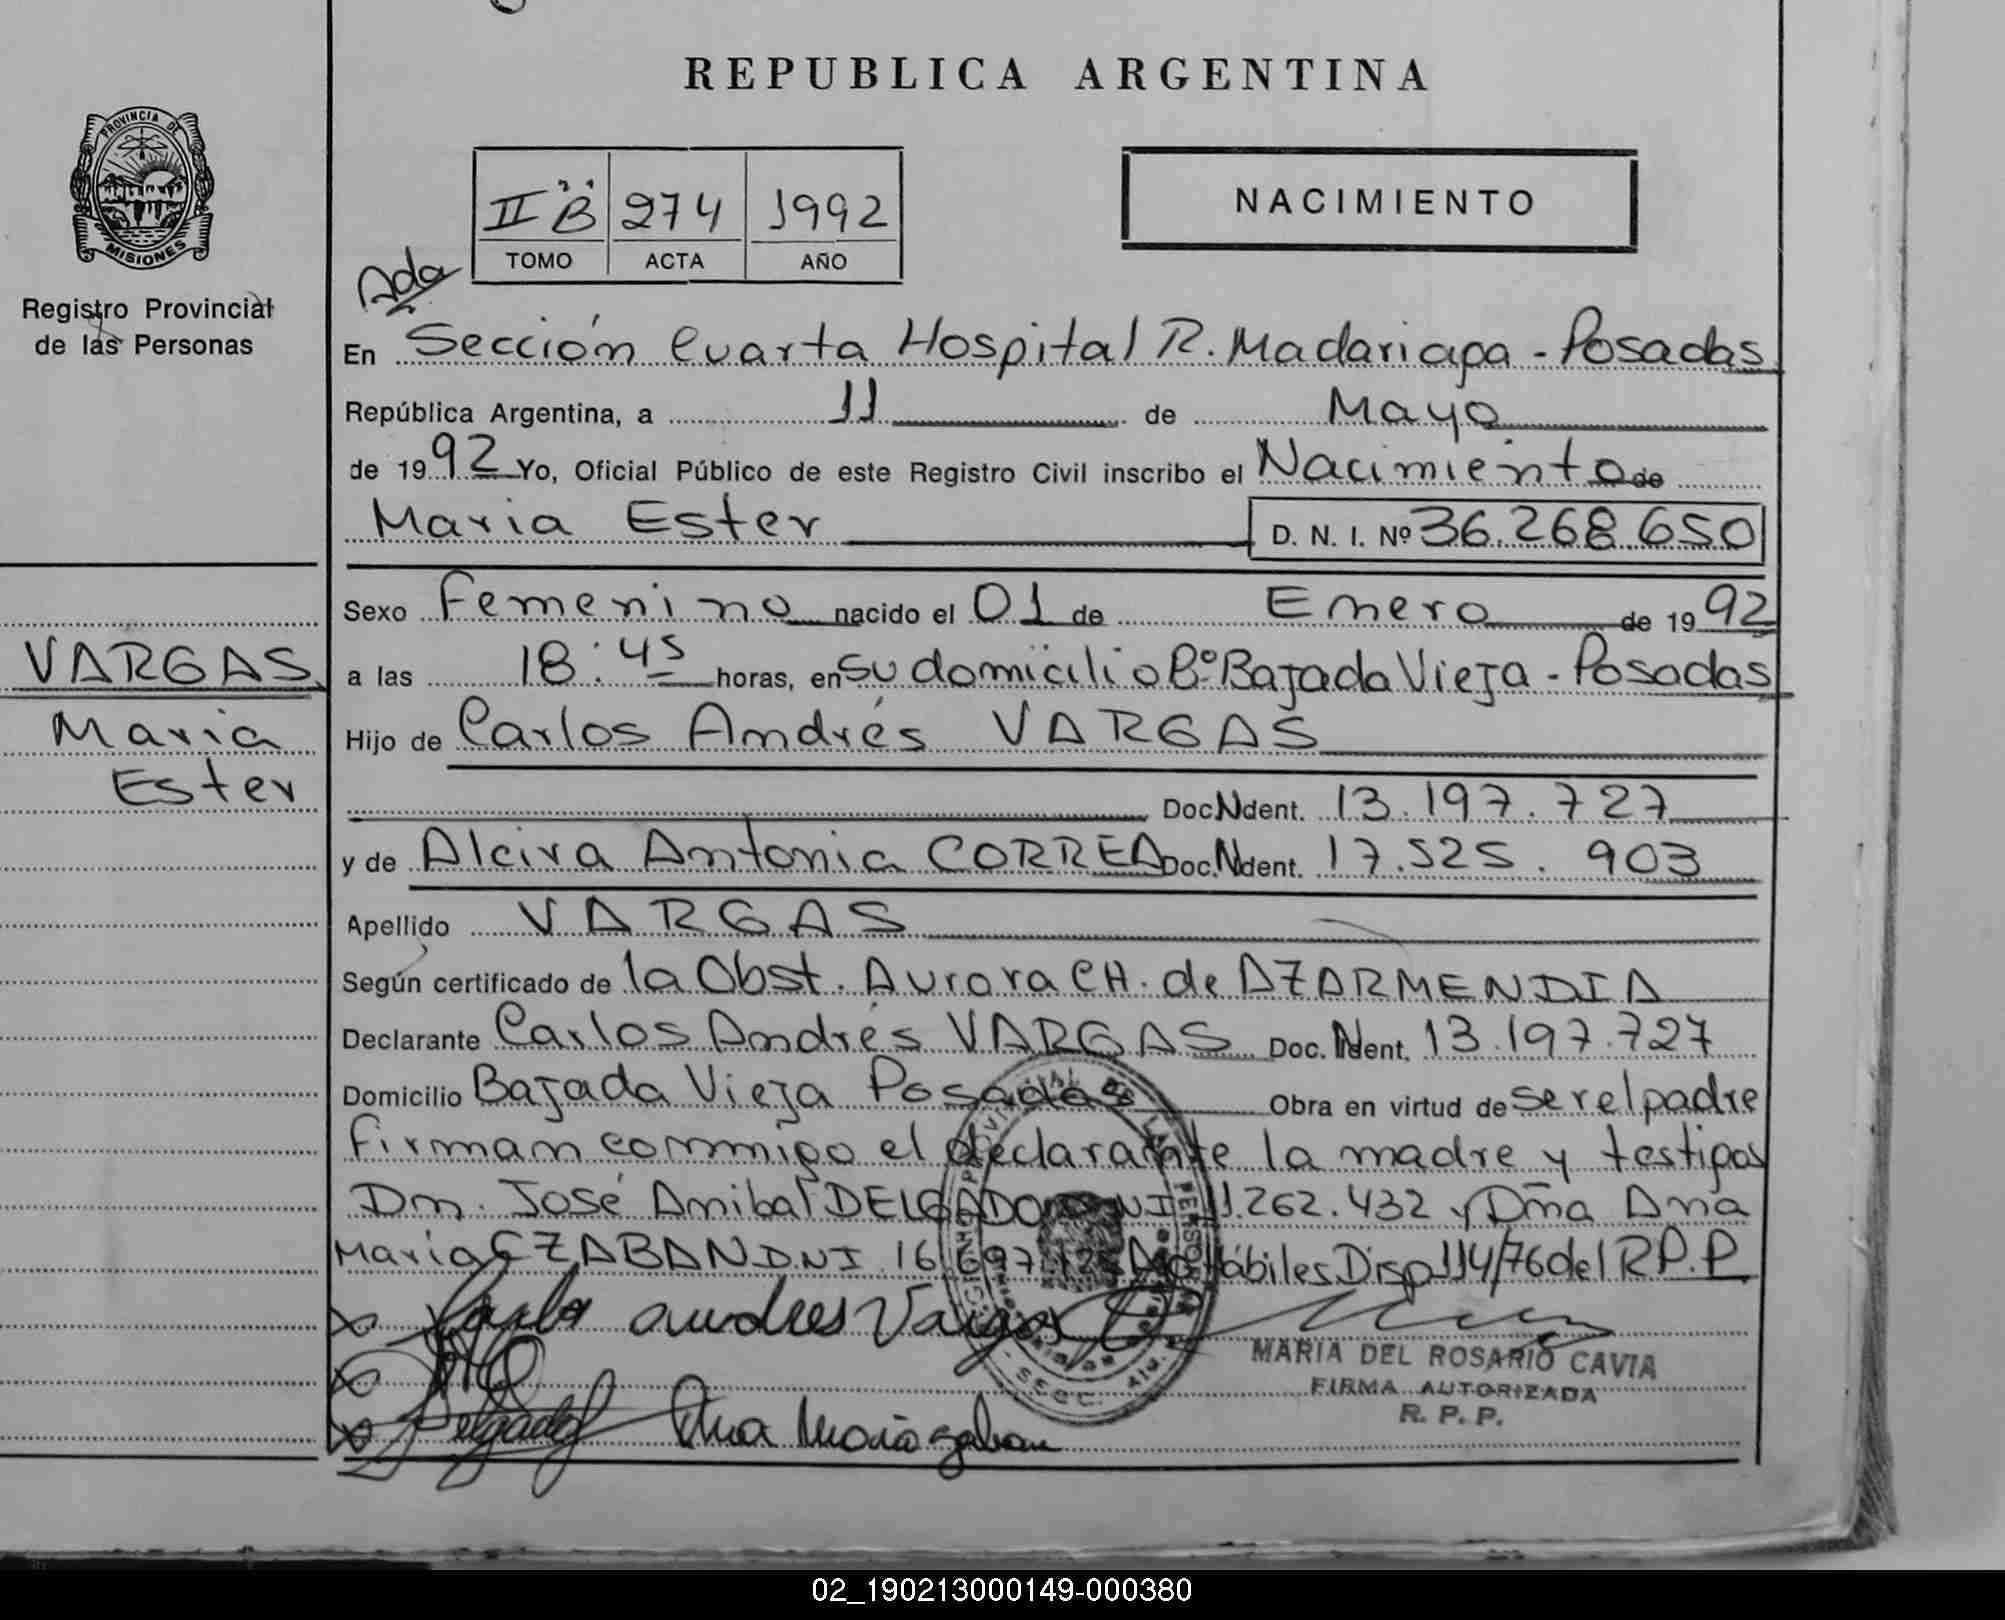 REPUBLICA ARGENTINA
PROVINCIA DE MISIONES
Registro Provincial
de las Personas
II "B" 274 1992
TOMO ACTA AÑO
NACIMIENTO
Ada
En Sección Cuarta Hospital R. Madariaga - Posadas
República Argentina, a 11 de Mayo
de 1992 Yo, Oficial Público de este Registro Civil inscribo el Nacimiento de
Maria Ester D. N. I. Nº 36.268.650
Sexo Femenino nacido el 01 de Enero de 1992
a las 18:45 horas, en su domicilio Bº Bajada Vieja - Posadas
Hijo de Carlos Andrés VARGAS
Doc. Ident. 13.197.727
y de Alcira Antonia CORREA Doc. Ident. 17.525.903
Apellido VARGAS
Según certificado de la Obst. Aurora CH. de AZARMENDIA
Declarante Carlos Andrés VARGAS Doc. Ident. 13.197.727
Domicilio Bajada Vieja Posadas Obra en virtud de ser el padre
firman conmigo el declarante la madre y testigos
Dn. José Anibal DELGADO DNI 11.262.432 y Dña Ana
Maria CZABAN DNI 16.697. Hábiles Disp 114/76 del R.P.P
Carlos andres Vargas
Delgado Ana Maria
MARIA DEL ROSARIO CAVIA
FIRMA AUTORIZADA
R. P. P.
VARGAS
Maria
Ester
02_190213000149-000380